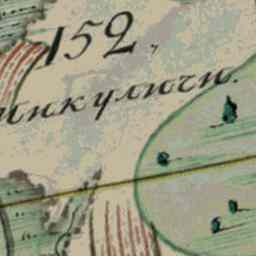 152,
инкуличи.